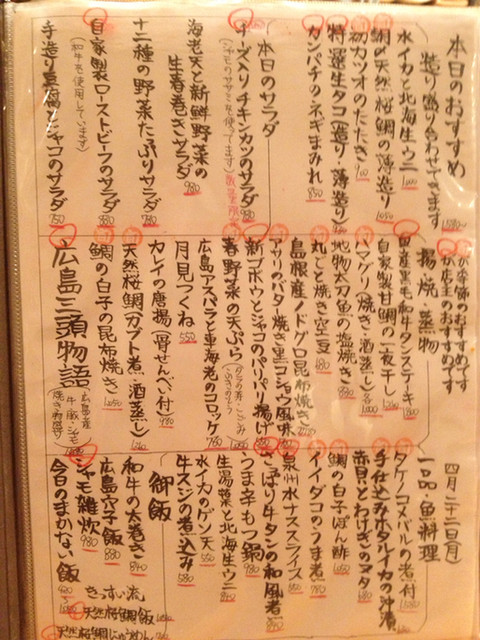 本日のおすすめ
造り盛り合わせできます
水イカと北海生ウニ
鯛の天然桜鯛の薄造り 1,050
初カツオのたたき
特選生タコ(造り・薄造り)
カンパチのネギまみれ 850
本日のサラダ
チーズ入りチキンカツのサラダ 980
海老天と新鮮野菜の
生春巻きサラダ 980
十二種の野菜たっぷりサラダ 780
自家製ローストビーフのサラダ 880
(和牛を使用しています)
手造り豆腐とジャコのサラダ 750
が季節のおすすめです
が店主のおすすめです
揚・焼・蒸物
国産黒毛和牛タンステーキ
自家製甘鯛の一夜干し
ハマグリ(焼き・酒蒸し)
地物太刀魚の塩焼き
丸ごと焼き空豆 480
島根産ノドグロ昆布焼き
アサリのバター焼き黒コショウ風味
新ゴボウとジャコのパリパリ揚げ
春野菜の天ぷら
広島アスパラと車海老のコロッケ 780
月見つくね 550
カレイの唐揚(骨せんべい付) 980
天然桜鯛(カブト煮・酒蒸し)
鯛の白子の昆布焼き 1,050
広島三頭物語
四月二十二日(月)
一品・魚料理
タケノコとメバルの煮付
手仕込みホタルイカの沖漬
赤貝とわけぎのヌタ
鯛の白子ぽん酢
イイダコのうま煮 780
泉州水ナススライス
さっぱり牛タンの和風煮
うま辛もつ鍋 980
生湯葉と北海生ウニ
水イカのゲソ天 550
牛スジの煮込み 580
御飯
和牛の太巻き 840
広島穴子飯 880
シャモ雑炊 980
今日のまかない飯
きっすい流
天然桜鯛飯
天然桜鯛じゅうめん